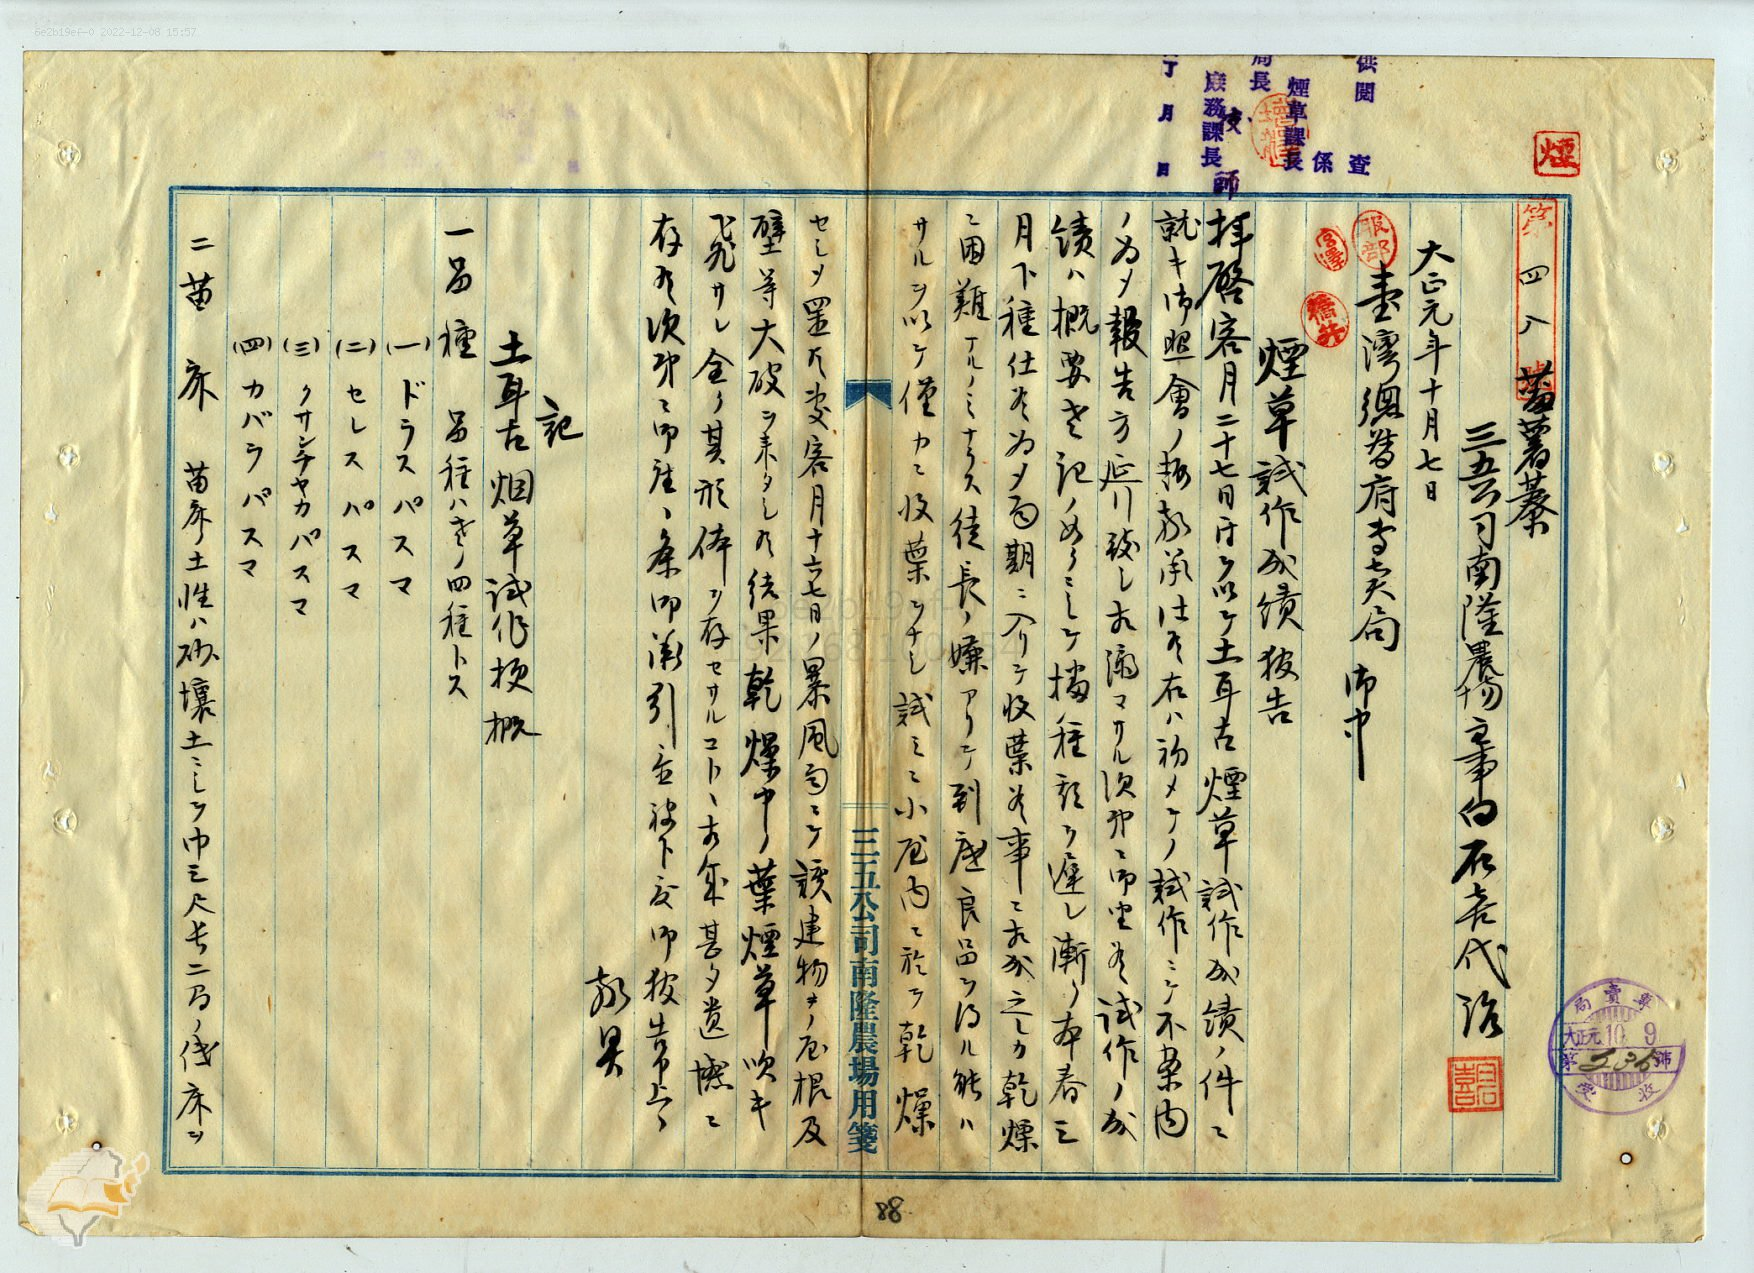 供閲
査
係
煙草課長
局長
庶務課長
月
日
煙
第四八號
蕃薯藔
三五公司南隆農場主事白石喜代治
大正元年十月七日
服部
臺灣總督府専賣局 御中
宮澤
煙草試作成績報告
拝啓客月二十七日付ヲ以テ土耳古煙草試作成績ノ件ニ
就キ御照會ノ趣敬承仕候右ハ初メテノ試作ニテ不案内
ノ為メ報告方延引致シ相濟マサル次第ニ御座候試作ノ成
績ハ概要左記ノ如クニシテ播種期ヲ遅レ漸ク本春三
月下種仕候為メ雨期ニ入リテ收葉候事ニ相成之レカ乾燥
ニ困難ナルノミナラス徒長ノ嫌アリテ到底良品ヲ得ル能ハ
サルヲ以テ僅カニ收葉ヲナシ試ミニ小屋内ニ於テ乾燥
セシメ置候処客月十六七日ノ暴風雨ニテ該建物ノ屋根及
壁等大破ヲ来タシ候結果乾燥中ノ葉煙草吹キ
飛ハサレ全ク其形体ヲ存セサルコトニ相成甚タ遺憾ニ
存候次第ニ御座候條御諒引被下度御報告申上候
敬具
記
土耳古烟草試作梗概
一品種 品種ハ左ノ四種トス
(一)ドラスパスマ
(二)セレスパスマ
(三)クサンチヤカパスマ
(四)カバラパスマ
二苗床 苗床土性ハ砂壤土ニシテ巾三尺長二間ノ低床ヲ
三五公司南隆農場用箋
専賣局
大正元 10. 9
第 536 號
收受
88
6e2b19ef-0 2022-12-08 15:57